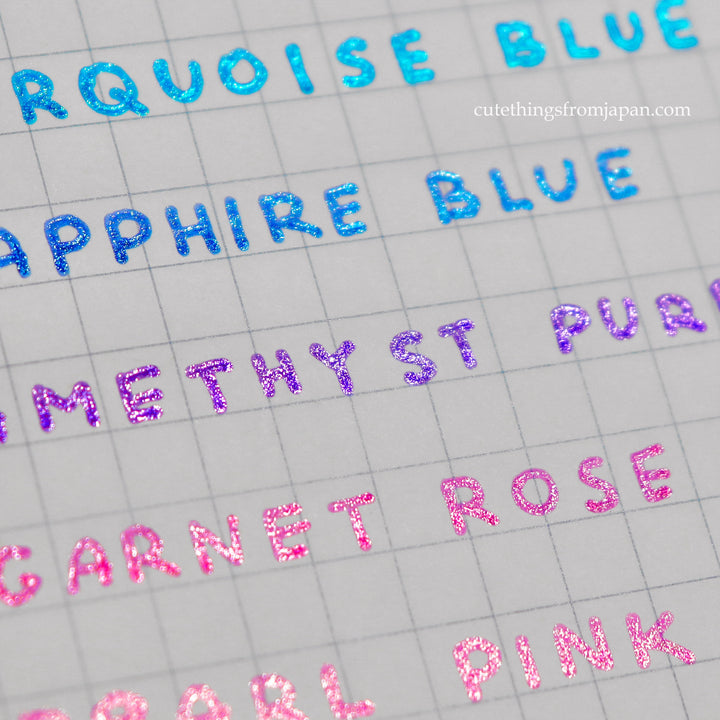 RQUOISE BLUE
cutethingsfromjapan.com
APPHIRE BLUE
AMETHYST PURP
GARNET ROSE
PEARL PINK